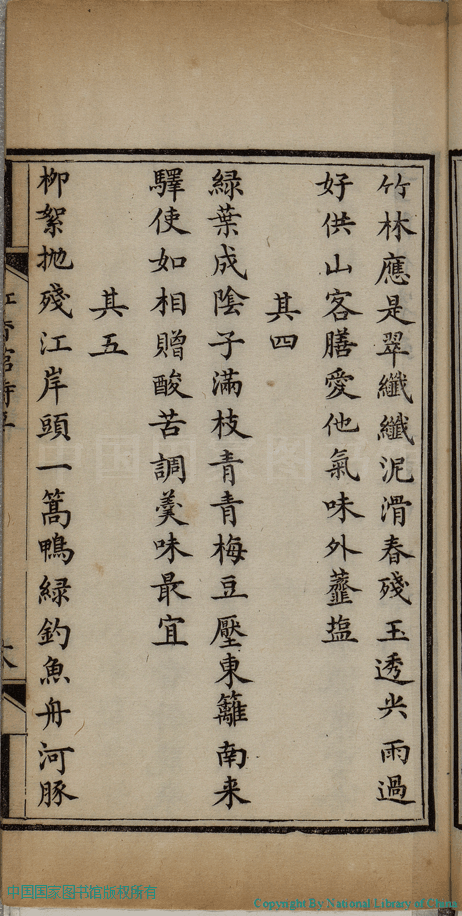 竹林應是翠纖纖泥滑春殘玉透尖雨過
好供山客膳愛他氣味外虀塩
其四
緑葉成陰子滿枝青青梅豆壓東籬南来
驛使如相贈酸苦調羹味最宜
其五
柳絮抛殘江岸頭一篙鴨緑釣魚舟河豚
中国国家图书馆版权所有
Copyright By National Library of China